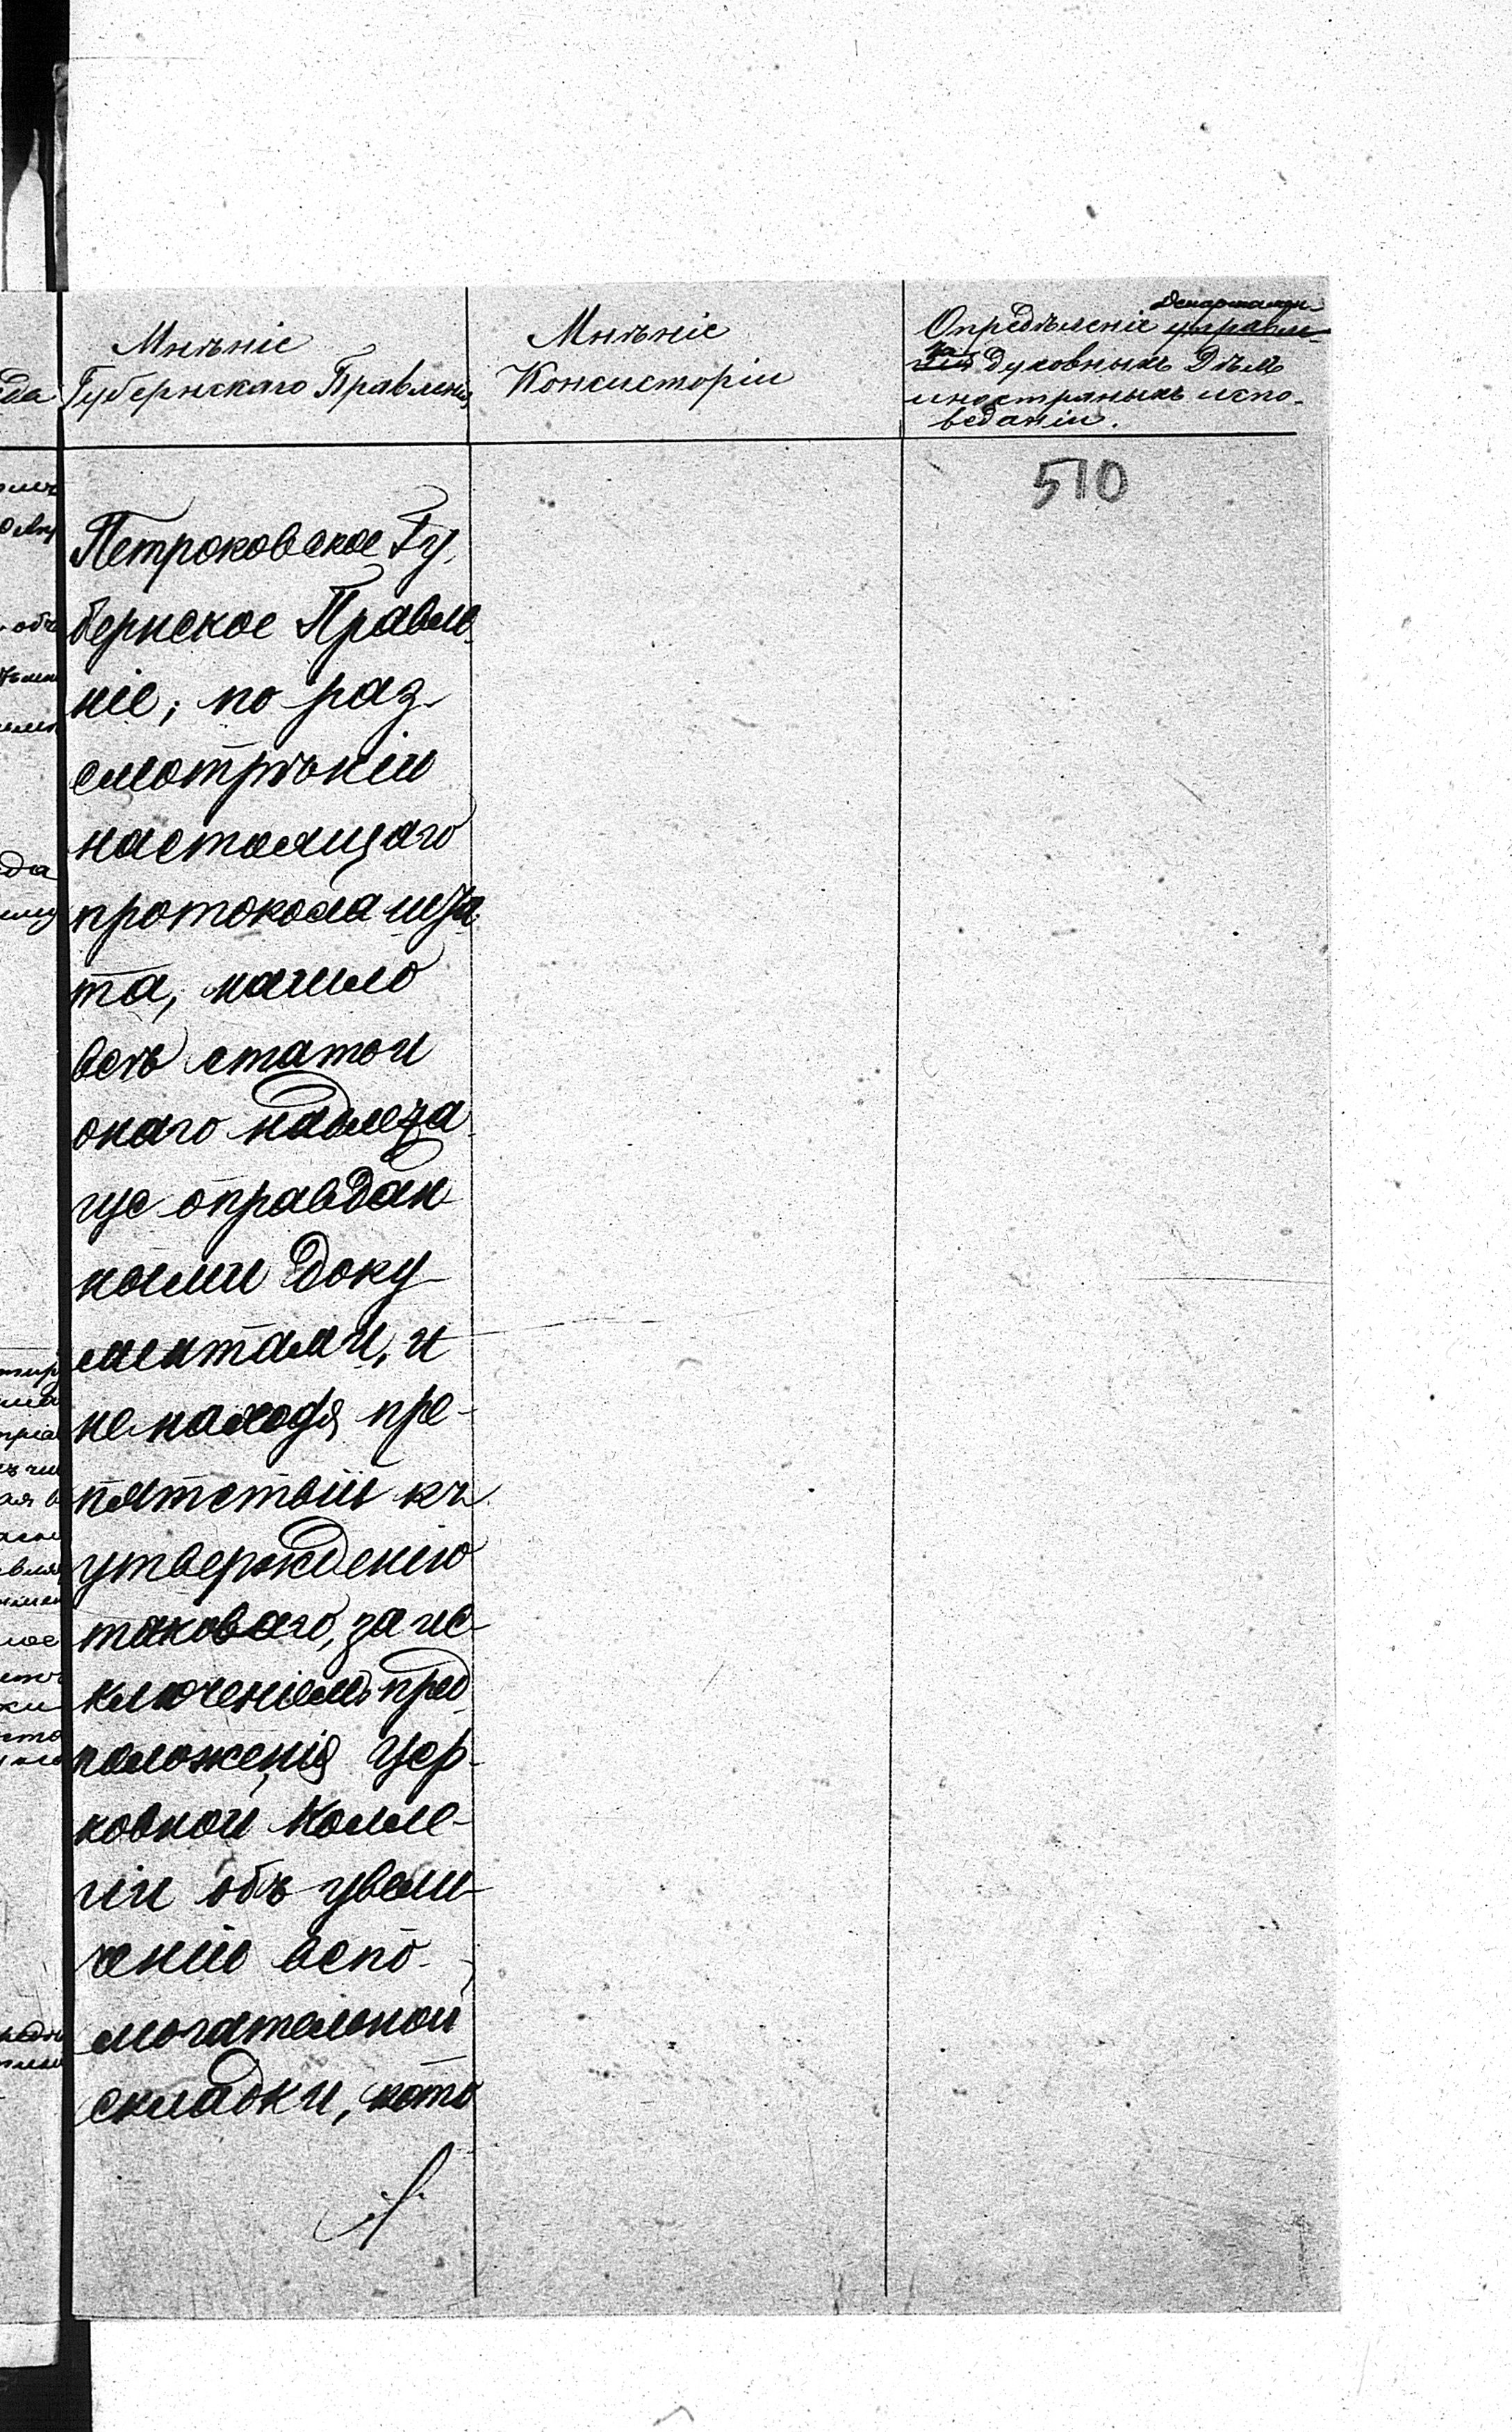 Мнѣніе
Губернскаго Правленія
Мнѣніе
Консисторіи
Департамен-
Опредѣленіе управле-
та нія духовныхъ Дѣлъ
иностранныхъ испо-
веданіи.
510
Петроковское Гу-
бернское Правле-
ніе, по раз-
смотрѣніи
настоящаго
протокола шта-
та, нашло
всѣ статьи
онаго надлежа-
ще оправдан-
ными доку-
ментами, и
не находя пре-
пятствій къ
утвержденію
таковаго, за ис-
ключеніемъ пред-
положенія Цер-
ковной Колле-
гіи объ увели-
ченіи вспо-
могательной
складки, кото